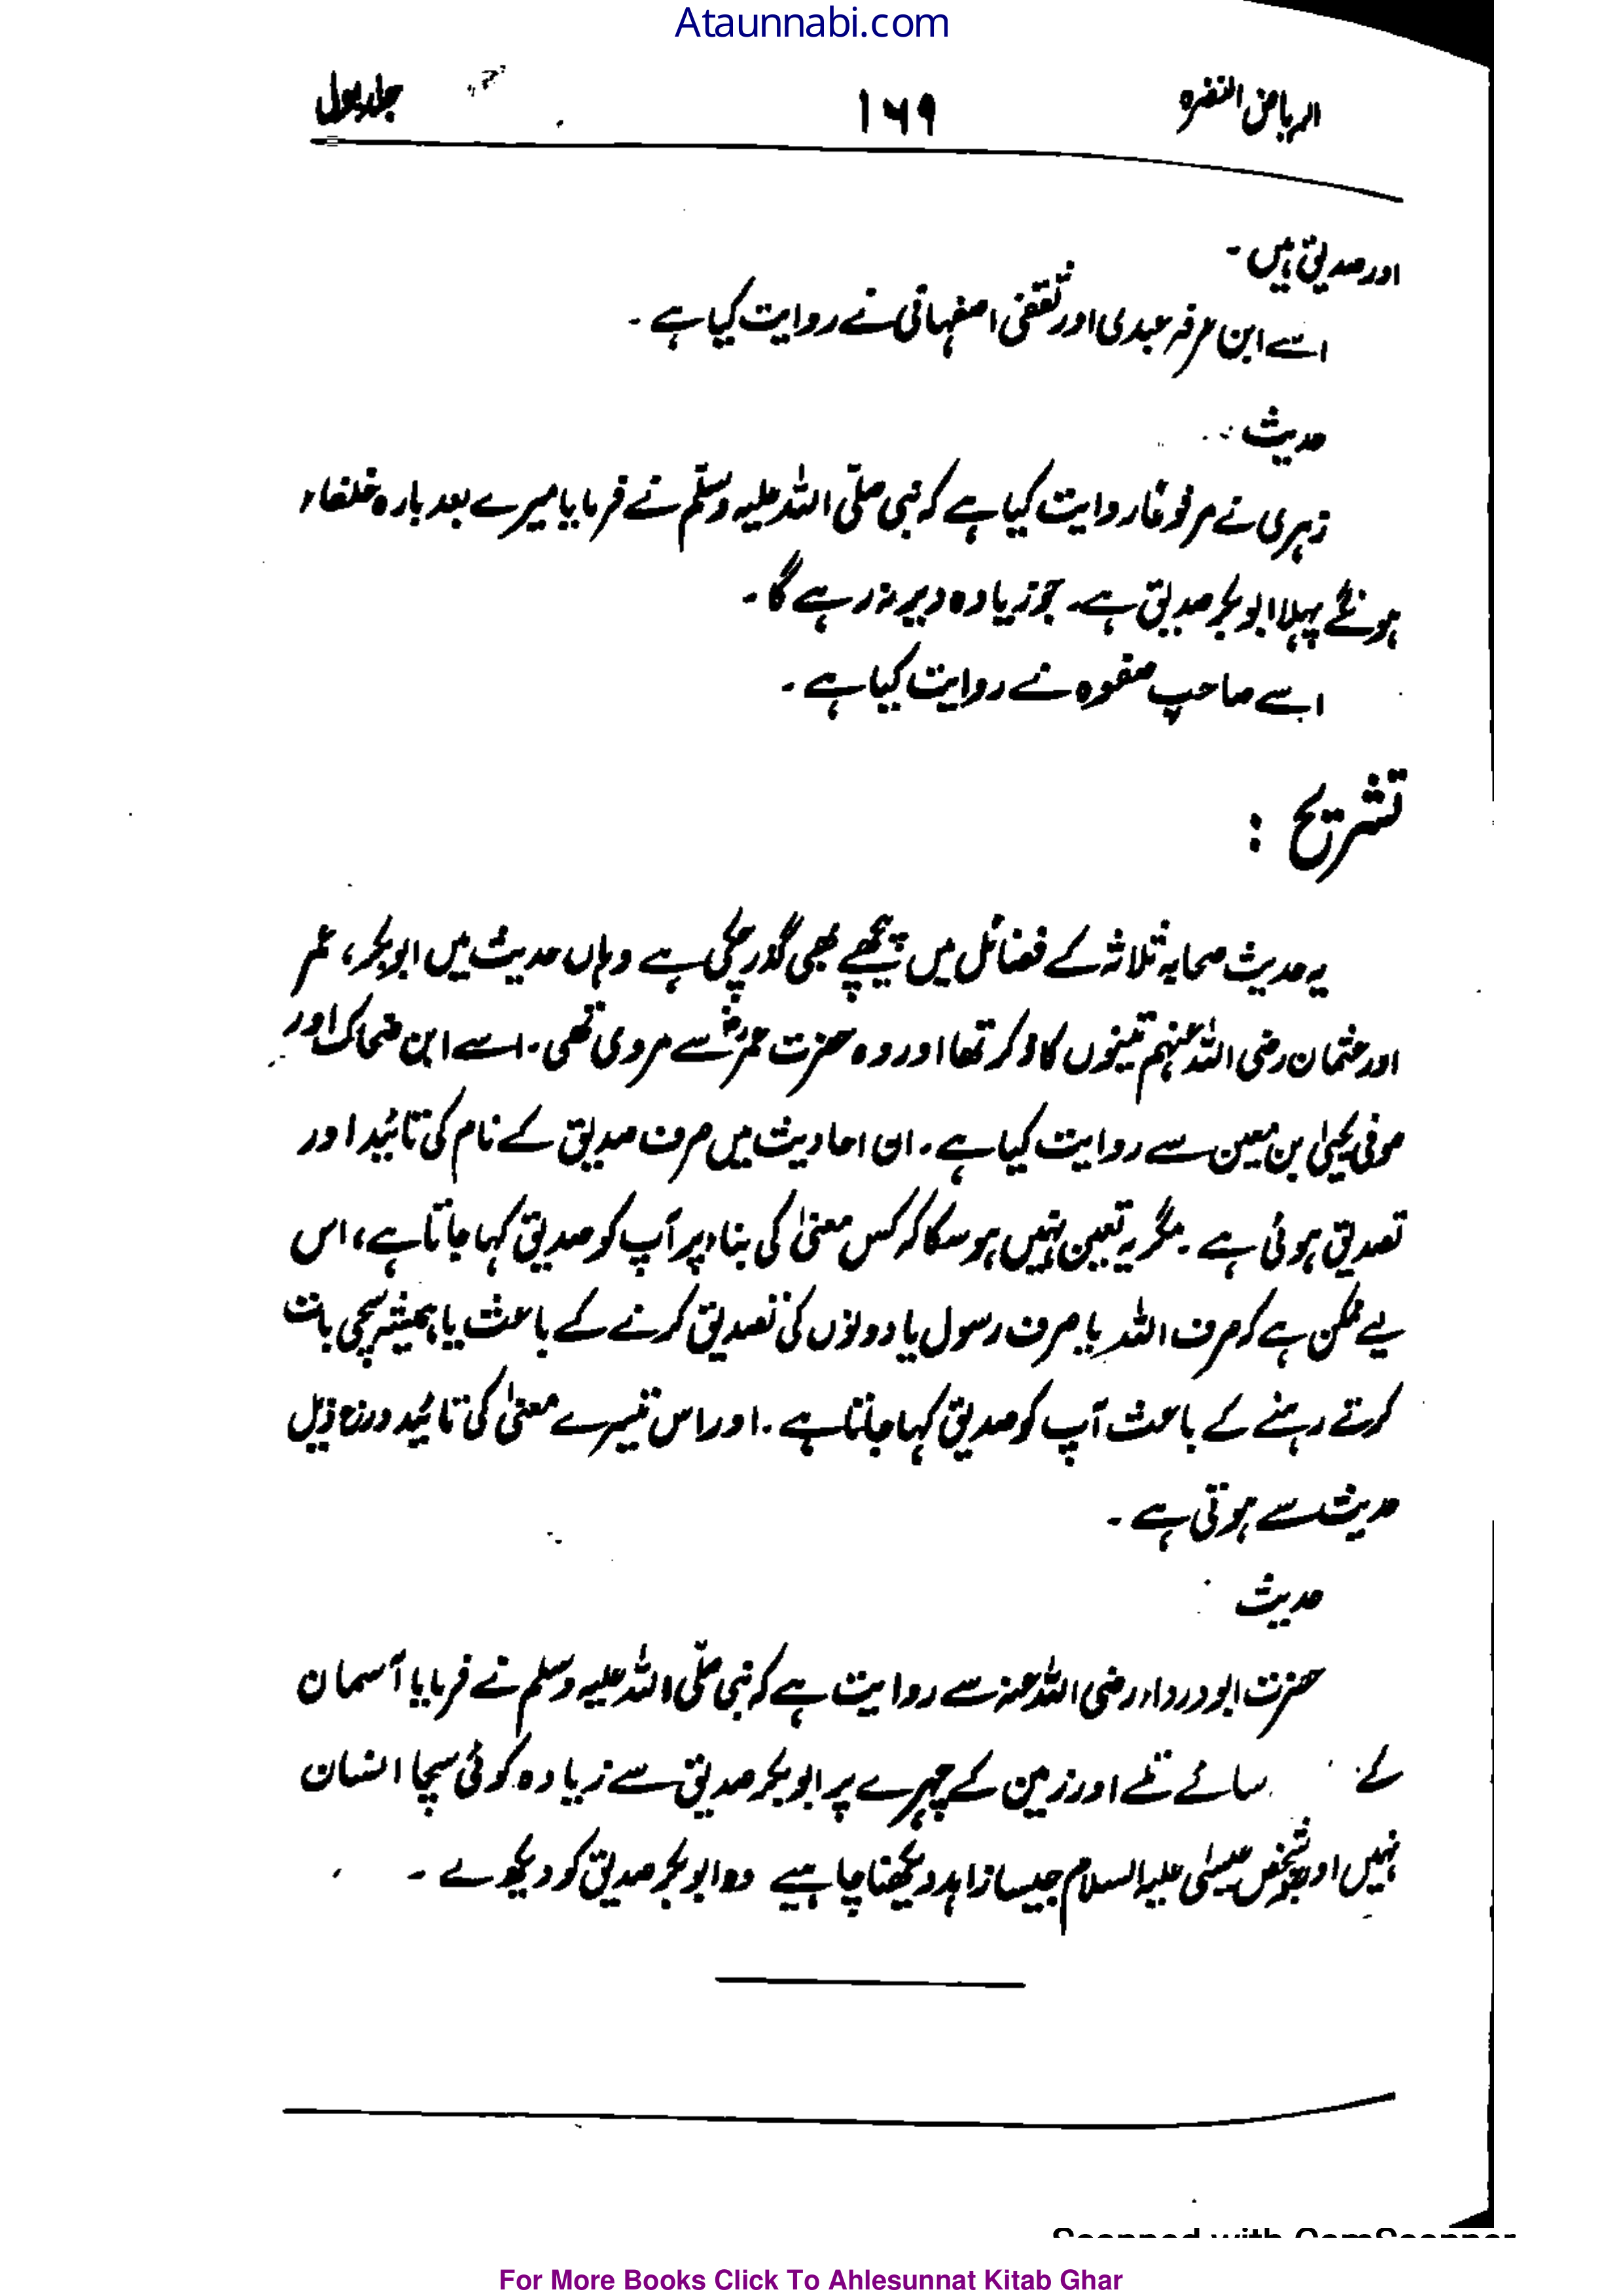 Ataunnabi.com
الریاض النضرہ ۱۶۹ جلد اول
اور صدیق ہیں ۔
اسے ابن عرفہ عبدی اور ثقفی اصفہانی نے روایت کیا ہے ۔
حدیث
زہری نے مرفوعًا روایت کیا ہے کہ نبی صلی اللہ علیہ وسلم نے فرمایا میرے بعد بارہ خلفاء
ہونگے پہلا ابوبکر صدیق ہے۔ جو زیادہ دیر نہ رہے گا ۔
اسے صاحب صفوہ نے روایت کیا ہے ۔
تشریح :
یہ حدیث صحابہ ثلاثہ کے فضائل میں پیچھے بھی گذر چکی ہے وہاں حدیث میں ابوبکر، عمر
اور عثمان رضی اللہ عنہم تینوں کا ذکر تھا اور وہ حضرت عمرؓ سے مروی تھی ۔ اسے ابن ضحاک اور
صوفی یحییٰ بن معین سے روایت کیا ہے ۔ ان احادیث میں صرف صدیق کے نام کی تائید اور
تصدیق ہوئی ہے ۔ مگر یہ تعین نہیں ہو سکا کہ کس معنیٰ کی بناء پر آپ کو صدیق کہا جاتا ہے، اس
لیے ممکن ہے کہ صرف اللہ یا صرف رسول یا دونوں کی تصدیق کرنے کے باعث یا ہمیشہ سچی بات
کرتے رہنے کے باعث آپ کو صدیق کہا جاتا ہے ۔ اور اس تیسرے معنیٰ کی تائید درج ذیل
حدیث سے ہوتی ہے ۔
حدیث
حضرت ابودرداء رضی اللہ عنہ سے روایت ہے کہ نبی صلی اللہ علیہ وسلم نے فرمایا آسمان
کے سائے تلے اور زمین کے چہرے پر ابوبکر صدیق سے زیادہ کوئی سچا انسان
نہیں اور جو شخص عیسیٰ علیہ السلام جیسا زاہد دیکھنا چاہیے وہ ابوبکر صدیق کو دیکھ لے ۔
Scanned with CamScanner
For More Books Click To Ahlesunnat Kitab Ghar